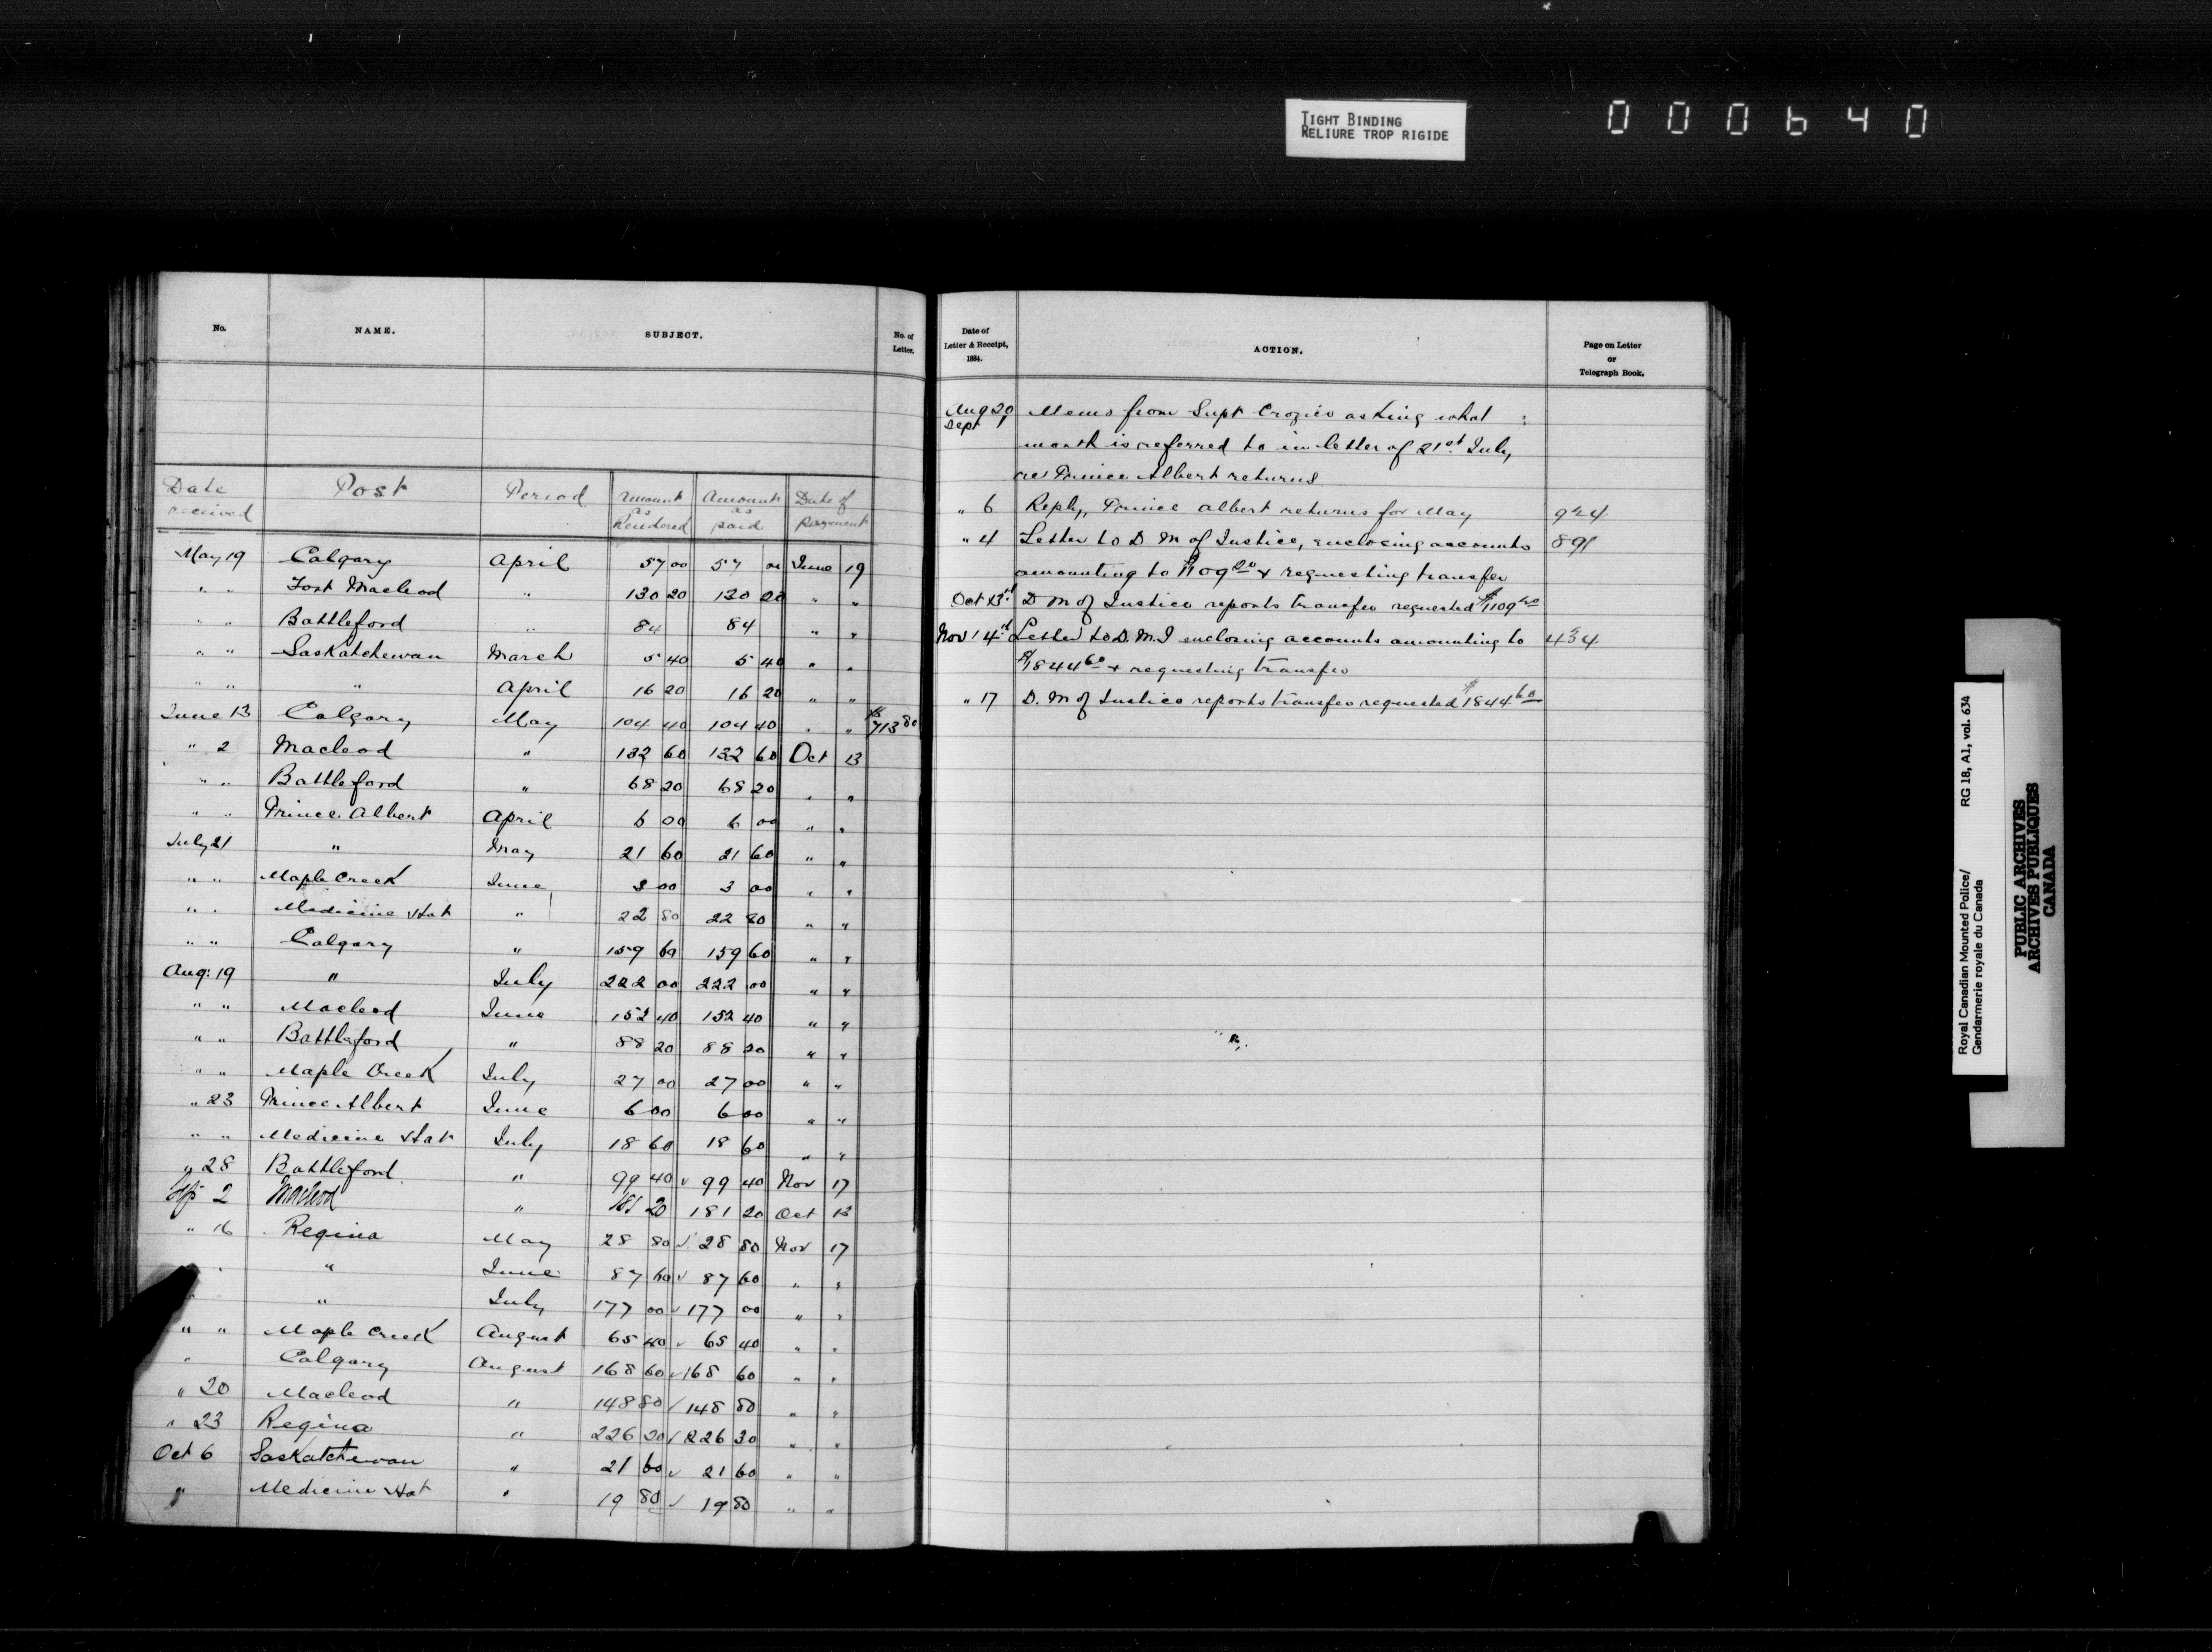 TIGHT BINDING
RELIURE TROP RIGIDE
000640
No. NAME. SUBJECT. No. of Letter.
Date received Post Period Amount as Rendered Amount as paid Date of payment
May 19 Calgary April 57 00 57 00 June 19
" " Fort Macleod " 130 20 130 20 " "
" " Battleford " 84 84 " "
" " Saskatchewan March 5 40 5 40 " "
" " " April 16 20 16 20 " "
June 13 Calgary May 104 40 104 40 " " $713 80
" 2 Macleod " 132 60 132 60 Oct 13
" " Battleford " 68 20 68 20 " "
" " Prince Albert April 6 00 6 00 " "
July 21 " May 21 60 21 60 " "
" " Maple Creek June 3 00 3 00 " "
" " Medicine Hat " 22 80 22 80 " "
" " Calgary " 159 60 159 60 " "
Aug: 19 " July 222 00 222 00 " "
" " Macleod June 152 40 152 40 " "
" " Battleford " 88 20 88 20 " "
" " Maple Creek July 27 00 27 00 " "
" 23 Prince Albert June 6 00 6 00 " "
" " Medicine Hat July 18 60 18 60 " "
" 28 Battleford " 99 40 ✓ 99 40 Nov 17
2 Macleod " 181 20 181 20 Oct 13
" 16 Regina May 28 80 ✓ 28 80 Nov 17
" " June 87 60 ✓ 87 60 " "
" " July 177 00 ✓ 177 00 " "
" " Maple Creek August 65 40 ✓ 65 40 " "
" Calgary August 168 60 ✓ 168 60 " "
" 20 Macleod " 148 80 ✓ 148 80 " "
" 23 Regina " 226 20 ✓ 226 20 " "
Oct 6 Saskatchewan " 21 60 ✓ 21 60 " "
" Medicine Hat " 19 80 ✓ 19 80 " "
Date of Letter & Receipt, 1884. ACTION. Page on Letter or Telegraph Book.
Aug 20 Memo from Supt Crozier asking what
Sept 1 month is referred to in letter of 21st July,
re Prince Albert returns
" 6 Reply, Prince Albert returns for May 924
" 4 Letter to D M of Justice, enclosing accounts 891
amounting to & requesting transfer
Oct 13th D M of Justice reports transfer requested $1109 20
Nov 14th Letter to D. M. J enclosing accounts amounting to 434
$1844 60 & requesting transfer
" 17 D. M of Justice reports transfer requested $1844 60
Royal Canadian Mounted Police/ RG 18, A1, vol. 634
Gendarmerie royale du Canada
PUBLIC ARCHIVES
ARCHIVES PUBLIQUES
CANADA